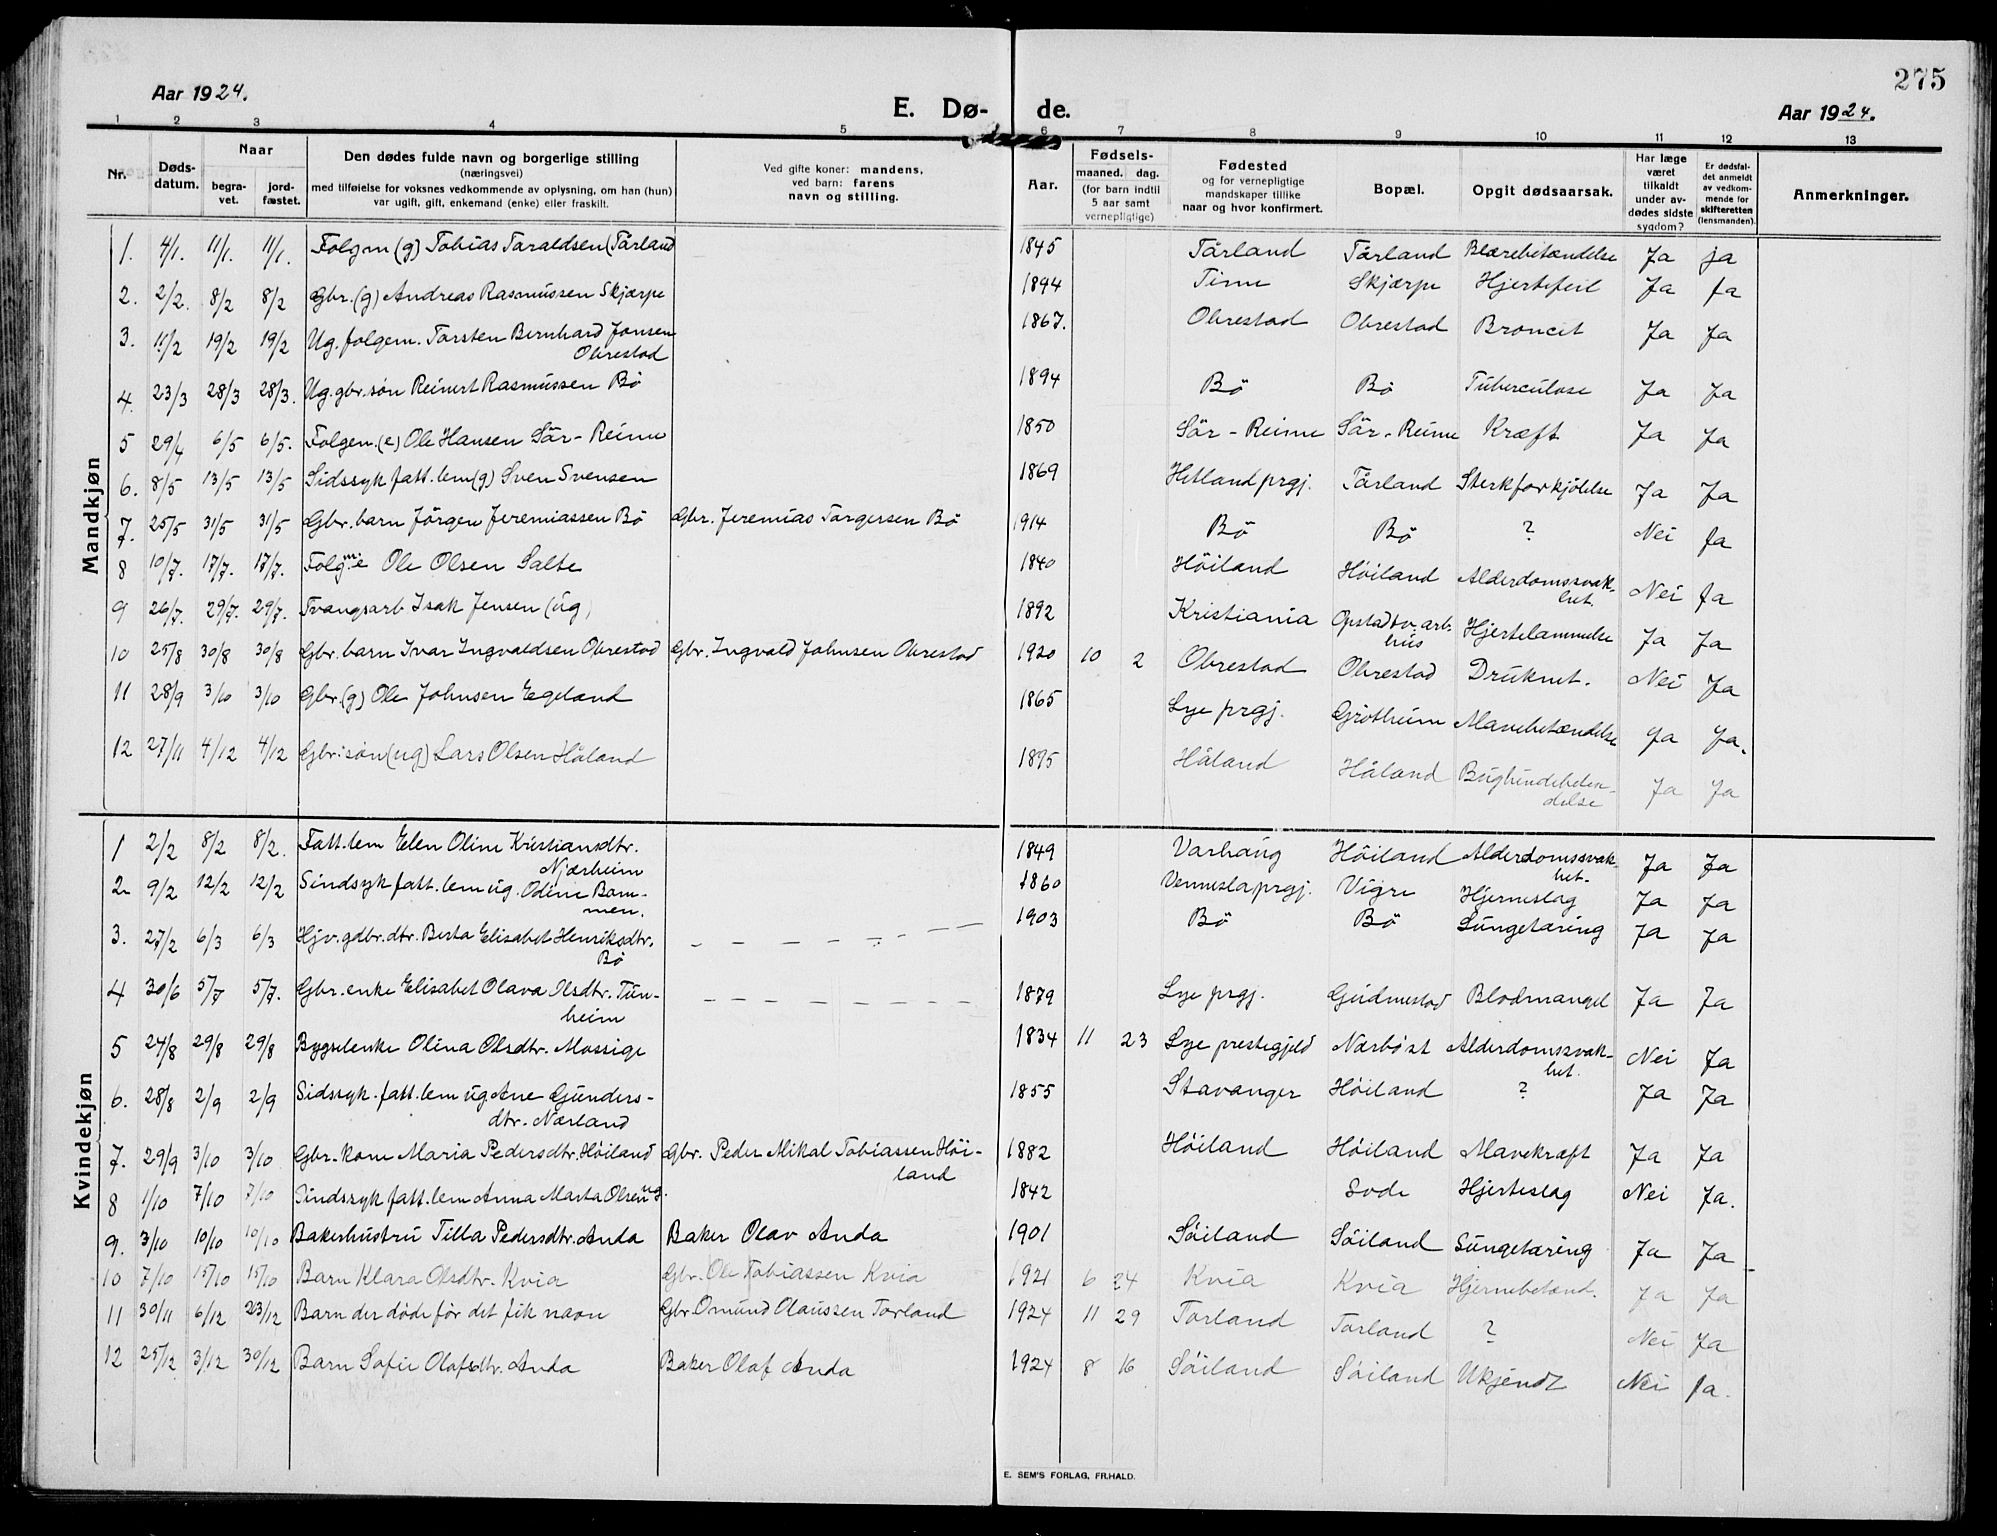 275
Aar 1924.
E. Dø- de.
Aar 1924.
1 2 3 4 5 6 7 8 9 10 11 12 13
Nr.
Døds-
datum.
Naar
begra-
vet.
jord-
fæstet.
Den dødes fulde navn og borgerlige stilling
(næringsvei)
med tilføielse for voksnes vedkommende av oplysning, om han (hun)
var ugift, gift, enkemand (enke) eller fraskilt.
Ved gifte koner: mandens,
ved barn: farens
navn og stilling.
Aar.
Fødsels-
maaned. dag.
(for barn indtil
5 aar samt
vernepligtige)
Fødested
og for vernepligtige
mandskaper tillike
naar og hvor konfirmert.
Bopæl.
Opgit dødsaarsak.
Har læge
været
tilkaldt
under av-
dødes sidste
sygdom?
Er dødsfal-
det anmeldt
av vedkom-
mende for
skifteretten
(lensmanden).
Anmerkninger.
Mandkjøn
1. 4/1. 11/1. 11/1. Folgm (g) Tobias Taraldsen (Tårland 1845 Tårland Tårland Blærebetændelse Ja ja
2. 2/2. 8/2 8/2 Gbr. (g) Andreas Rasmussen Skjærpe 1894 Time Skjærpe Hjertefeil Ja Ja
3. 11/2 19/2 19/2 Ug. folgem. Torsten Bernhard Jonsen
Obrestad 1867. Obrestad Obrestad Broncit Ja Ja
4. 23/3 28/3 28/3. Ug. gbr. søn Reinert Rasmussen Bö 1894 Bö Bö Tuberculose Ja Ja
5 29/4 6/5 6/5. Folgem. (e) Ole Hansen Sör-Reime 1850 Sör-Reime Sör-Reime Kræft Ja Ja
6. 8/5 13/5 13/5 Sidssyk fatt. lem (g) Sven Svensen 1869 Hetland prgj. Tårland Sterk forkjölelse Ja Ja
7. 25/5 31/5 31/5 Gbr. barn Jörgen Jeremiassen Bö Gbr. Jeremias Torgersen Bö 1914 Bö Bö ? Nei Ja
8 10/7. 17/7. 17/7. Folgm. e Ole Olsen Salte 1840 Höiland Höiland Alderdomssvak-
het. Nei Ja
9 26/7. 29/7. 29/7. Tvangsarb Isak Jensen (ug) 1892 Kristiania Opstad tv. arb.
hus Hjertelammelse Ja Ja
10 25/8 30/8 30/8 Gbr. barn Ivar Ingvaldsen Obrestad Gbr. Ingvald Johnsen Obrestad 1920 10 2 Obrestad Obrestad Druknet. Nei Ja
11 28/9 3/10 3/10 Gbr. (g) Ole Johnsen Egeland 1865 Lye prgj. Grötheim Mavebetændelse Ja Ja.
12 27/11 4/12 4/12 Gbr. søn (ug) Lars Olsen Håland 1895 Håland Håland Bughindebeten-
delse Ja Ja
Kvindekjøn
1 2/2 8/2 8/2. Fatt. lem Elen Oline Kristiansdtr.
Njærheim 1849 Varhaug Höiland Alderdomssvak-
het. Ja Ja
2 9/2 12/2 12/2 Sindsyk fatt. lem ug. Odine Bom-
men. 1860 Vennesla prgj. Vigre Hjerneslag Ja Ja
3. 27/2 6/3 6/3 Hjv. gdbr. dtr. Berta Elisabet Henriksdtr.
Bö 1903 Bö Bö Lungetæring Ja Ja
4 30/6 5/7 5/7. Gbr. enke Elisabet Olava Olsdtr. Tun-
heim 1879 Lye prgj. Gudmestad Blodmangel Ja Ja
5 24/8 29/8 29/8 Bygselenke Olina Olsdtr. Mossige 1834 11 23 Lye prestegjeld Nærböst Alderdomssvak-
het. Nei Ja
6. 28/8 2/9 2/9 Sidssyk. fatt. lem ug Ane Gunders-
dtr. Nærland 1855 Stavanger Höiland ? Ja Ja
7. 29/9 3/10 3/10 Gbr. kone Maria Pedersdtr. Höiland Gbr. Peder Mikal Tobiassen Höi-
land 1882 Höiland Höiland Mavekræft Ja Ja
8 1/10 7/10 7/10 Sindssyk fatt. lem Anna Marta Olsen ug. 1842 Sode Hjerteslag Nei Ja.
9. 3/10 10/10 10/10 Bakerhustru Tilla Pedersdtr. Anda Baker Olav Anda 1901 Söiland Söiland Lungetæring Ja Ja
10 7/10 15/10 15/10 Barn Klara Olsdtr. Kvia Gbr. Ole Tobiassen Kvia 1921 6 24 Kvia Kvia Hjernebetænd. Ja Ja
11 30/11 6/12 23/12 Barn der döde før det fik navn Gbr. Omund Olaussen Torland 1924 11 29 Torland Torland ? Nei Ja
12 25/12 3/12 30/12 Barn Sofie Olafsdtr. Anda Baker Olaf Anda 1924 8 16 Söiland Söiland Ukjendt Nei Ja.
E. SEM'S FORLAG, FR.HALD.